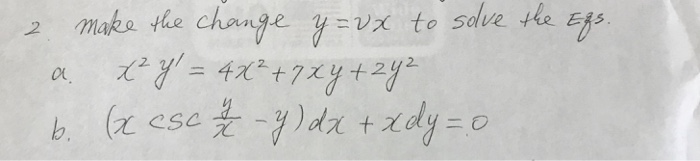 2 make the change y=vx to solve the Eqs.
a. x² y' = 4x²+7xy+2y²
b. (x csc y/x -y)dx + xdy=0